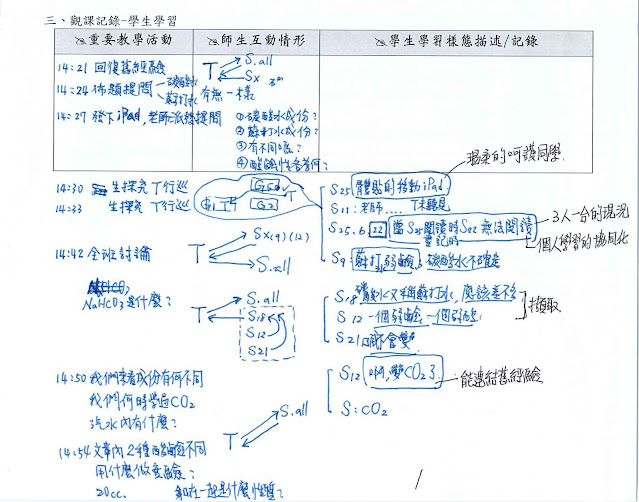 三、觀課記錄-學生學習
重要教學活動
師生互動情形
學生學習樣態描述/記錄
14:21 回復舊經驗
T S.all
Sx
14:24 佈題提問 碳酸水 蘇打水 有無一樣
14:27 發下iPad,老師派發提問
①碳酸水成份?
②蘇打水成份?
③有不同嗎?
④酸鹼性為何?
14:30 生探究 T行巡
14:33 生探究 T行巡
G1 T G2
S25 體貼的移動iPad
溫柔的呵護同學.
S11:老師.... T未聽見
S25.6 22 當S25閱讀時S22無法閱讀
登記時
3人一台的現況
個人學習的協同化
S9 蘇打,弱鹼, 碳酸水不確定
14:42 全班討論
T Sx(9)(12)
S.all
NaHCO3是什麼?
T S.all
S18
S12
S21
S18 碳酸水又稱蘇打水,應該差不多
S12 一個弱鹼一個弱酸
擷取
S21 都會變
14:50 我們來看成份有何不同
我們何時學過CO2
汽水內有什麼?
T S.all
S12 啊,變CO2 3.
能連結舊經驗
S:CO2
14:54 文章內2種酸鹼不同
用什麼做實驗?
20cc. 和在一起是什麼性質?
T